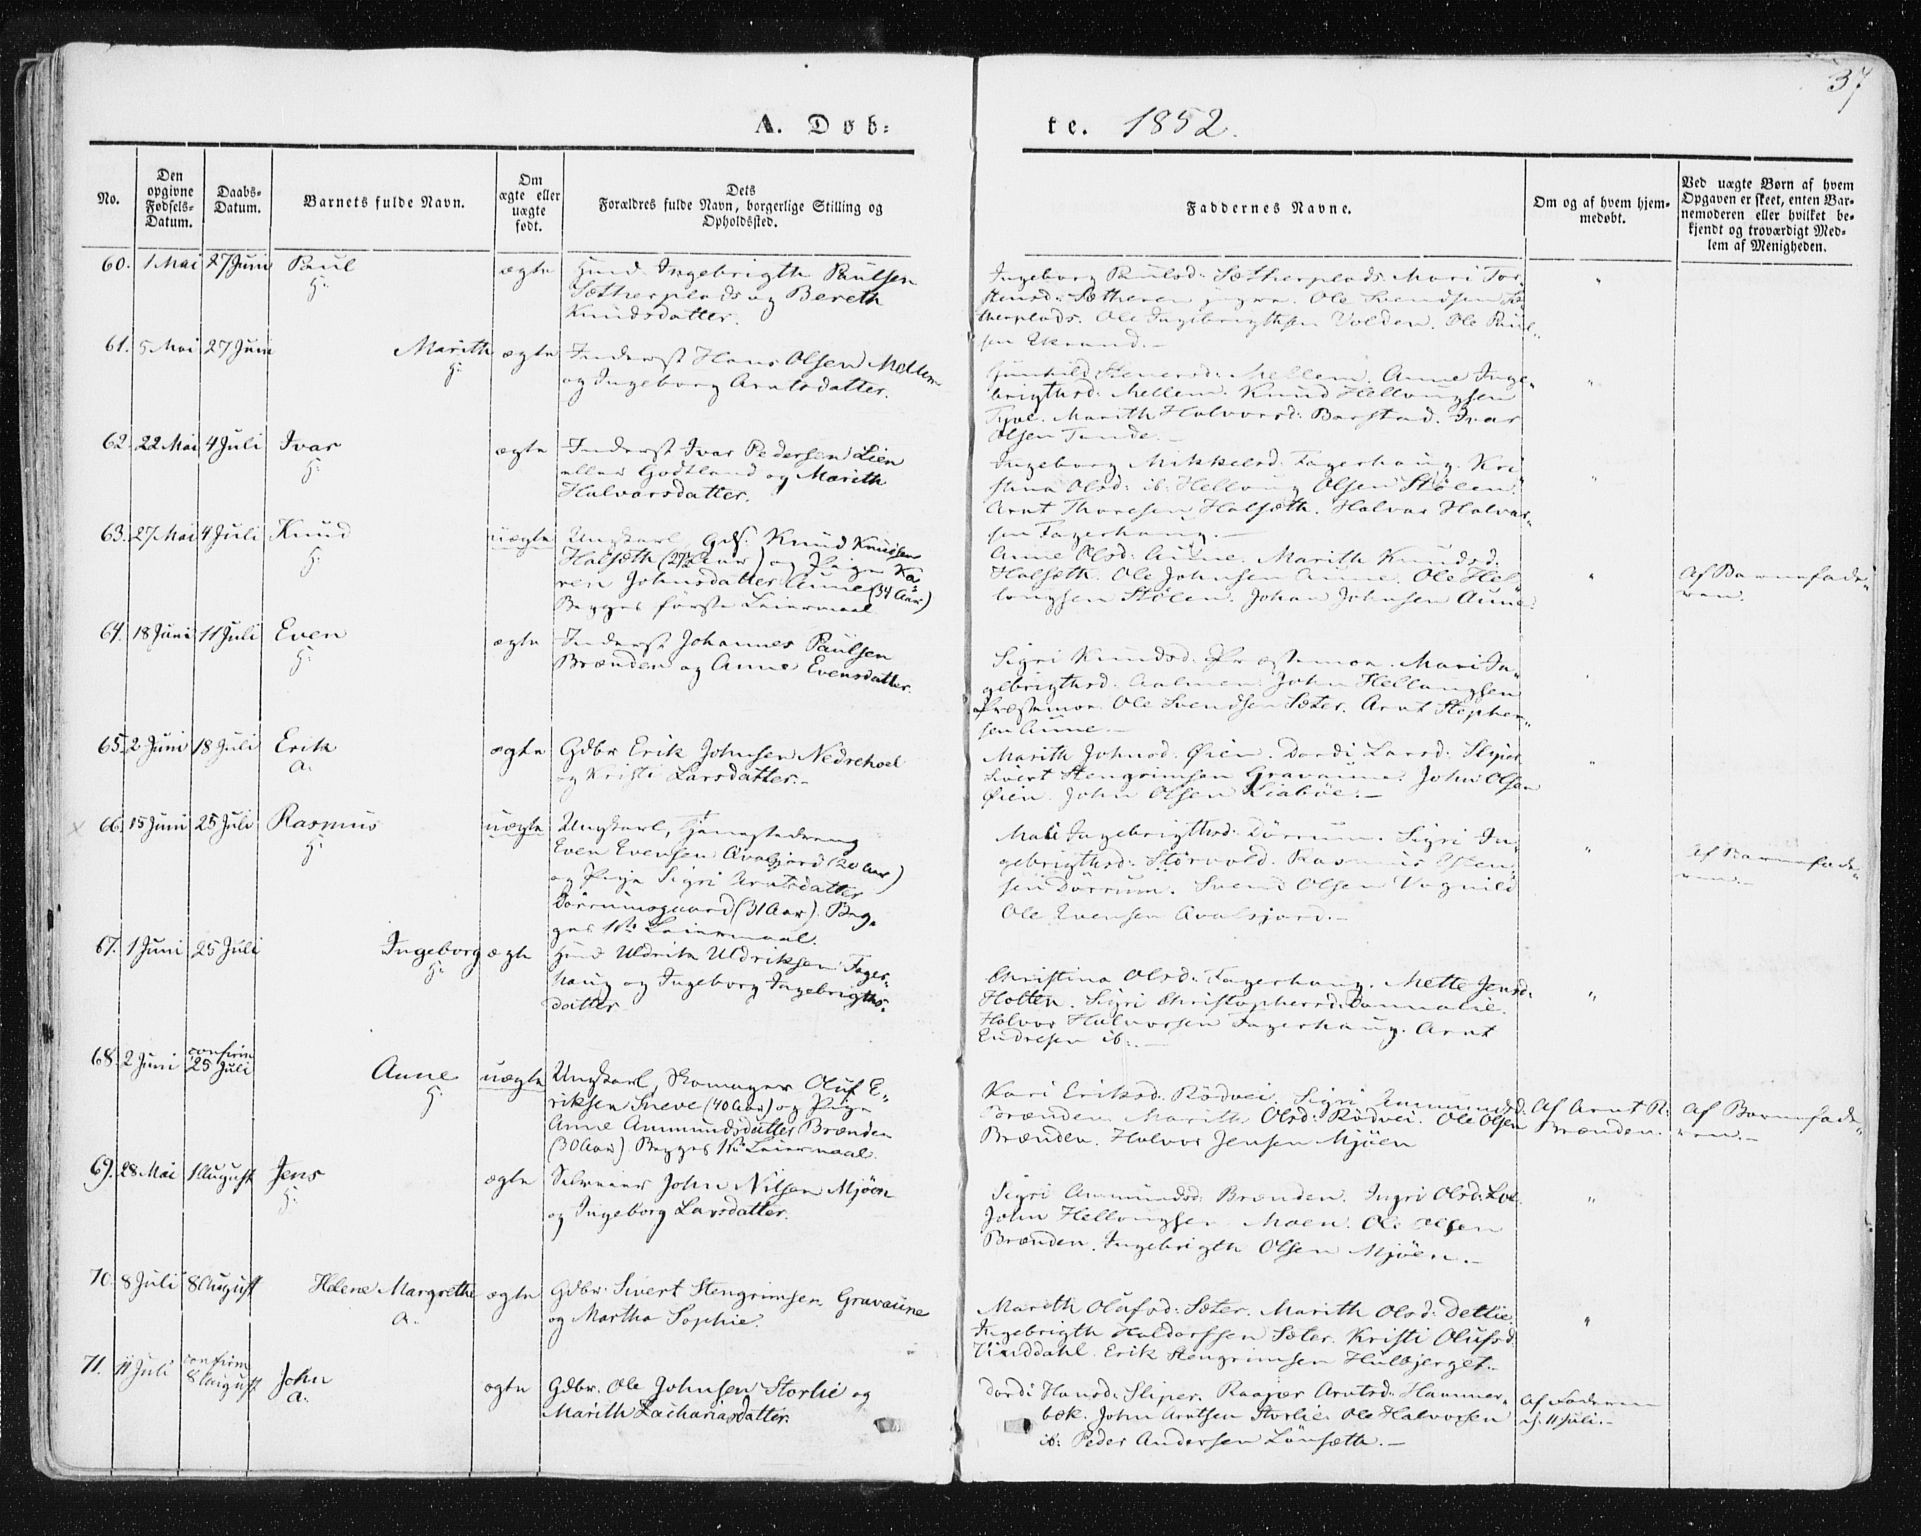 37
A. Døb: te. 1852.
No.
Den opgivne Fødsels-Datum.
Daabs-Datum.
Barnets fulde Navn.
Om ægte eller uægte født.
Dets Forældres fulde Navn, borgerlige Stilling og Opholdssted.
Faddernes Navne.
Om og af hvem hjem-medøbt.
Ved uægte Børn af hvem Opgaven er skeet, enten Bar-nemoderen eller hvilket be-kjendt og troværdigt Med-lem af Menigheden.
60. 1 Mai 27 Juni Paul ægte Huusd. Ingebrigth Paulsen
H.
Sætherplads og Bereth
Knudsdatter.
Ingeborg Paulsd: Sætherplads. Mari Tor-
stensd: Sætheren . Ole Svendsen Sæ-
therplads. Ole Ingebrigthsen Volden. Ole Paul-
sen Ekrand.-
61. 5 Mai 27 Juni Marith ægte Inderst Hans Olsen Mellem
H.
og Ingeborg Arntsdatter.
Gunhild Stenersd: Mellem. Anne Inge-
brigthsd: Mellem. Knud Hellougsen
Marith Halvorsd: Barstad. Ivar
Olsen Tunde.-
62. 22 Mai 4 Juli Ivar ægte Inderst Ivar Pedersen Lien
H.
eller Godtland og Marith
Halvorsdatter.
Ingeborg Mikkelsd: Fagerhaug. Kri-
stina Olsd: ib: Helloug Olsen Stølen.
Arnt Thoresen Halsæth. Halvor Halvor-
sen Fagerhaug.-
63. 27 Mai 4 Juli Knud uægte Ungkarl, Gds. Knud Knudsen
H.
Halsæth (27½ Aar) og Pige Ka-
ren Johnsdatter Aune (34 Aar)
Begges første Leiermaal
Anne Olsd: Aune. Marith Knudsd.
Halsæth. Ole Johnsen Aune. Ole Hel-
lougsen Stølen. Johan Johnsen Aune.
Af Barnefade-
ren.
64. 18 Juni 11 Juli Even ægte Inderst Johannes Paulsen
H.
Brænden og Anne Evensdatter.
Sigri Knudsd: Præstmoe. Mari In-
gebrigthsd. Aalmen. John Hellougsen
Præstmoe. Ole Svendsen Sæter. Arnt Stephen-
sen Aune.-
65. 2 Juni 18 Juli Erik ægte Gdbr Erik Johnsen Nedrehoel
A.
og Kristi Larsdatter.-
Marith Johnsd: Øien. Dordi Larsd: Sliper
Sivert Stengrimsen Gravaune. John Olsen
Øien. John Olsen Liabøe.-
66. 15 Juni 25 Juli Rasmus uægte Ungkarl, Tjenestedreng
H.
Even Evensen Avalsjord (20 Aar)
og Pige Sigri Arntsdatter
Dørrumsgaard (31 Aar). Beg-
ges 1ste Leiermaal.
Mari Ingebrigthsd: Dørrum. Sigri In-
gebrigthsd: Størvold. Rasmus Esten-
sen Dørrum. Svend Olsen Vognild
Ole Evensen Avalsjord.-
Af Barnefade-
ren.-
67. 1 Juni 25 Juli Ingeborg ægte Huusd Uldrik Uldriksen Fager-
H.
haug og Ingeborg Ingebrigths-
datter
Christina Olsd: Fagerhaug. Mette Jensd:
Holten. Sigri Christophersd: Donnalie.
Halvor Halvorsen Fagerhaug. Arnt
Endresen ib:-
68. 2 Juni confirm 25 Juli Anne uægte Ungkarl, Skomager Oluf E-
H.
riksen Sneve (40 Aar) og Pige
Anne Ammundsdatter Brænden
(30 Aar) Begges 1ste Leiermaal.
Kari Eriksd: Rødvei. Sigri Ammundsd.
Brænden. Marith Olsd: Rødvei. Ole Olsen
Brænden. Halvor Jensen Mjøen
Af Arnt R.
Brænden.
Af Barnefade-
ren.-
69. 28 Mai 1 August Jens ægte Selveier John Nilsen Mjøen
H.
og Ingeborg Larsdatter.
Sigri Ammundsd: Brænden. Ingri Olsd: Loe.
John Hellougsen Moen. Ole Olsen
Brænden. Ingebrigth Olsen Mjøen.-
70. 8 Juli 8 August Helene Margrethe ægte Gdbr: Sivert Stengrimsen Gravaune
A.
og Martha Sophie.
Marith Olufsd: Sæter. Marith Olsd: Detlie.
Ingebrigth Haldorssen Sæter. Kristi Olufsd:
Vinddahl. Erik Stengrimsen Hulbjerget.-
71. 11 Juli confirm 8 August John ægte Gdbr. Ole Johnsen Storlie og
A.
Marith Zachariasdatter.
Dordi Hansd: Sliper. Raajør Arntsd: Hammer-
bæk. John Arntsen Storlie. Ole Halvorsen
ib: Peder Andersen Lønsæth.-
Af Faderen
d. 11 Juli.-